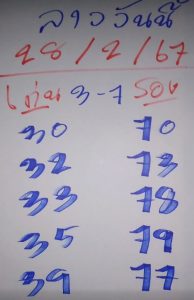 ลาววันนี้
28/2/67
เด่น 3-7 รอง
30 70
32 73
33 78
35 79
39 77